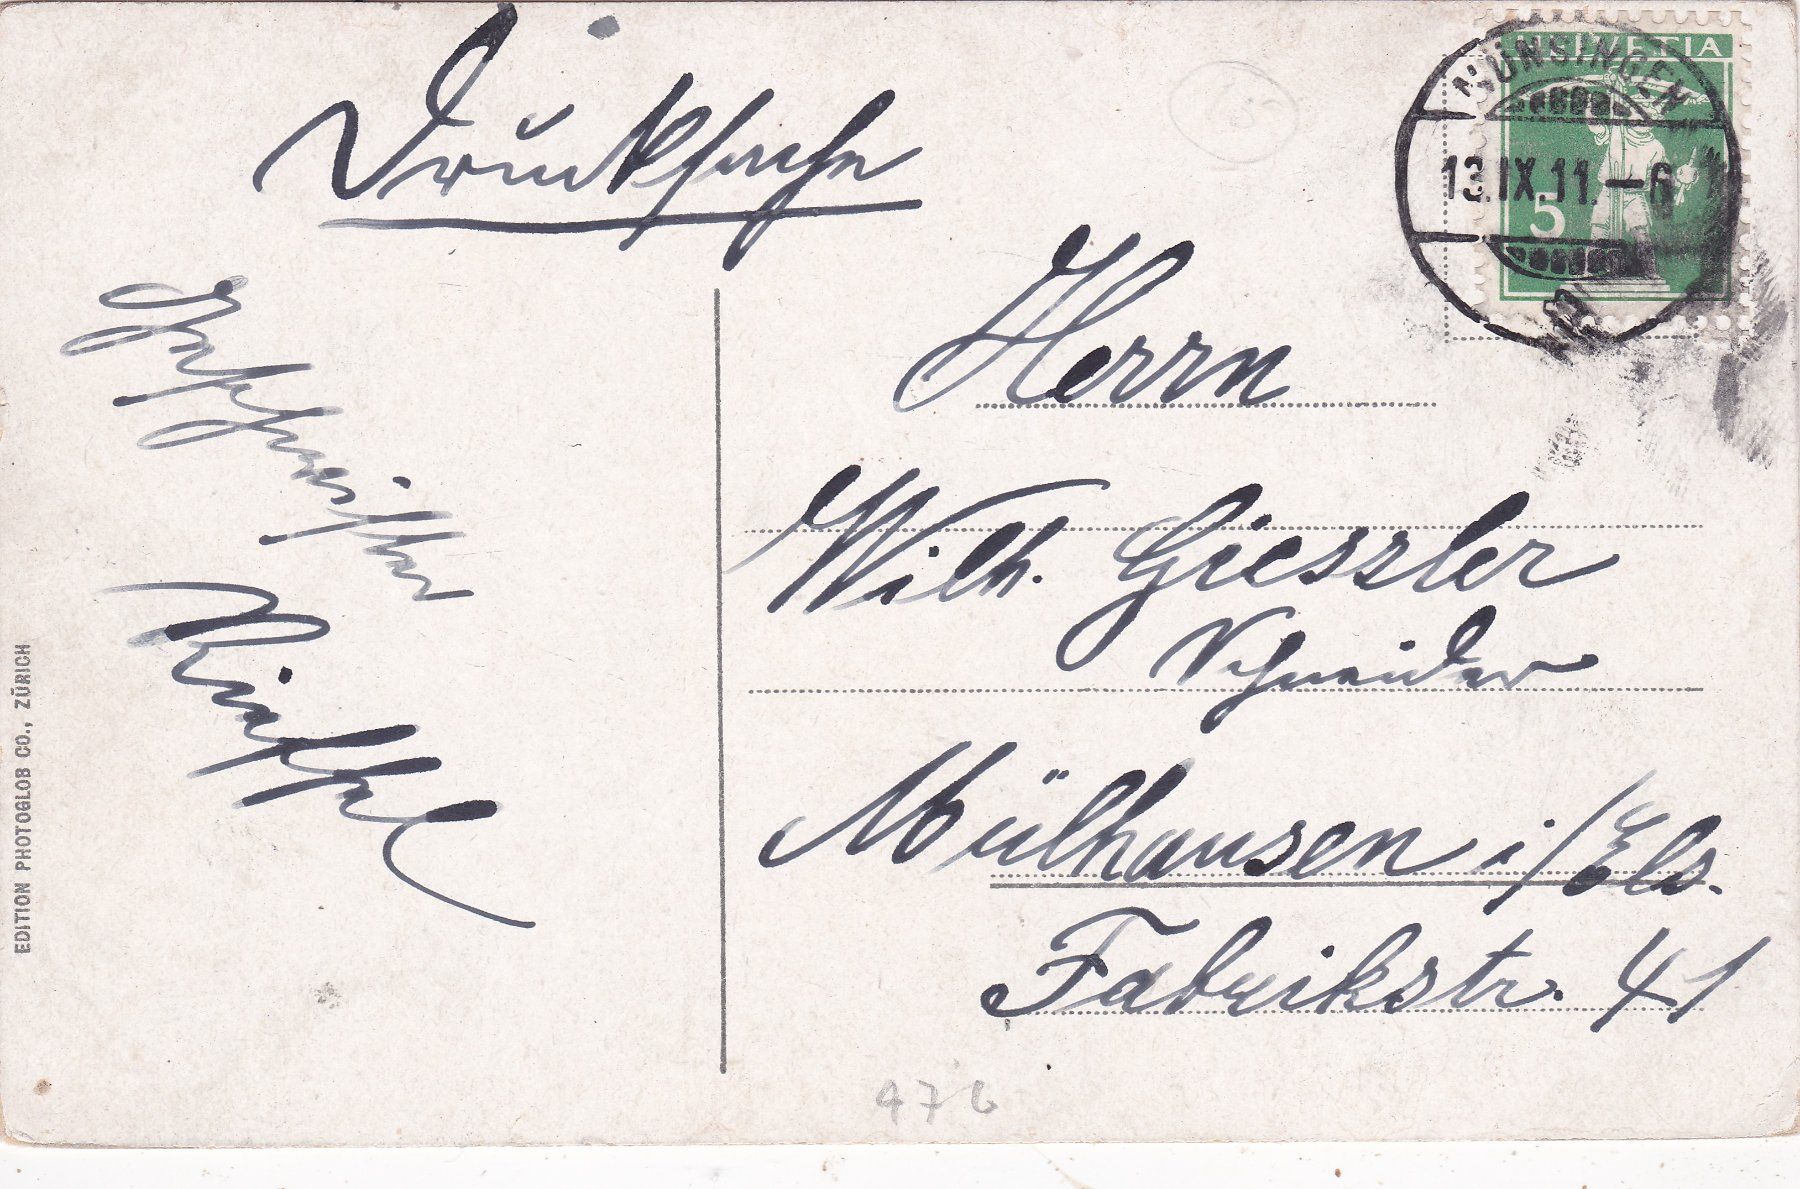 Drucksache
HELVETIA
MÜNSINGEN
13.IX.11.–6
5
Herrn
Wilh. Giessler
Schneider
Mülhausen i/Els.
Fabrikstr. 41
Geschwister
EDITION PHOTOGLOB CO., ZÜRICH
476